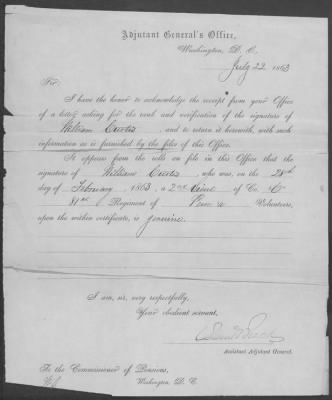 Adjutant General's Office,
Washington, D. C.,
July 22, 1863
Sir:
I have the honor to acknowledge the receipt from your Office
of a letter asking for the rank and verification of the signature of
William Curtis, and to return it herewith, with such
information as is furnished by the files of this Office.
It appears from the rolls on file in this Office that the
signature of William Curtis, who was, on the 28th
day of February, 1863, a 2nd Lieut of Co. C
81st Regiment of Penn a Volunteers,
upon the within certificate, is genuine.
I am, sir, very respectfully,
Your obedient servant,
Assistant Adjutant General.
To the Commissioner of Pensions,
Washington, D. C.